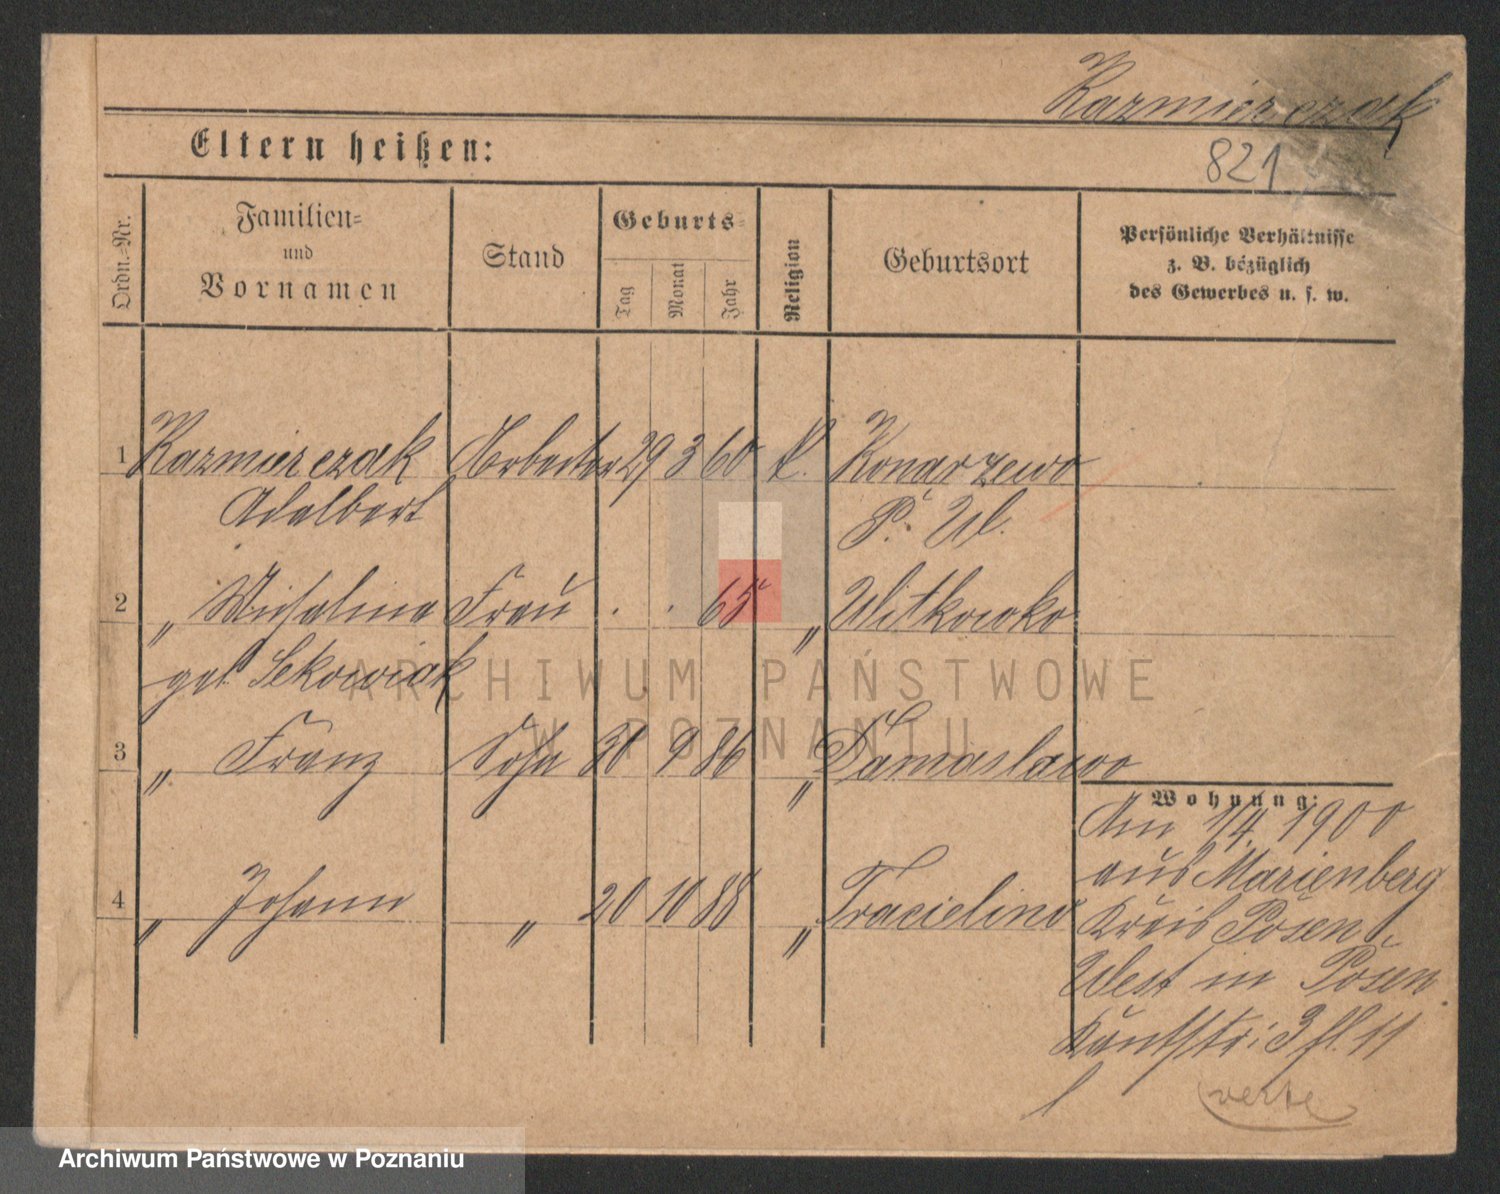 Kazmierczak
Eltern heißen:
821
Ordn.-Nr.
Familien-
und
Vornamen
Stand
Geburts-
Tag
Monat
Jahr
Religion
Geburtsort
Persönliche Verhältnisse
z. B. bezüglich
des Gewerbes u. s. w.
1 Kazmierczak Arbeiter 29 3 60 k. Konarzewo
Adalbert P. W.
2 " Michalina Frau . . 65 " Witkowko
geb. Sekowiak
3 " Franz Sohn 30 9 86 " Damaslawo
4 " Johann " 20 10 88 "
Wohnung:
Am 1/4. 1900
aus Marienberg
Kreis Posen
West in Posen
3 11
verte
ARCHIWUM PAŃSTWOWE
W POZNANIU
Archiwum Państwowe w Poznaniu